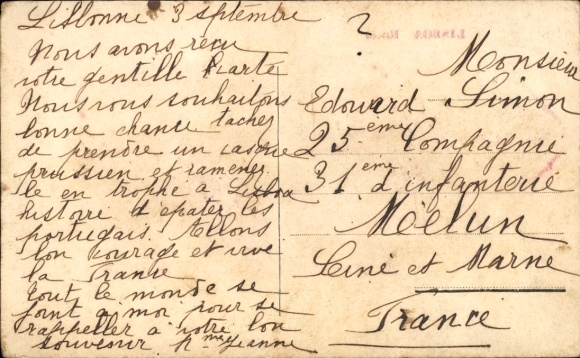 Lisbonne 3 septembre
Nous avons reçu
votre gentille carte
Nous vous souhaitons
bonne chance tachez
de prendre un casque
prussien et ramener
le en trophé a Lisboa
histoire d'epater les
portugais. Allons
bon courage et vive
la France
tout le monde se
joint a moi pour se
rappeller a votre bon
souvenir Mme Jeanne
?
LISBOA
Monsieur
Edouard Simon
25eme Compagnie
31eme d'infanterie
Melun
Seine et Marne
France